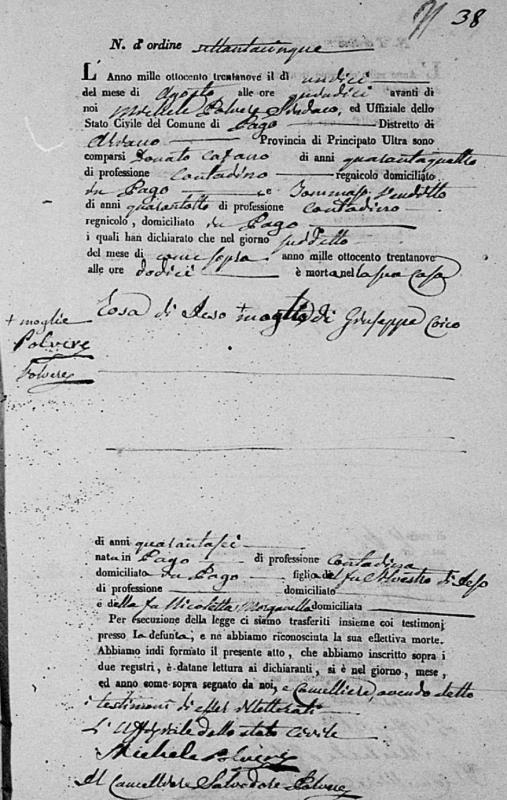 38
N. d'ordine settantacinque
L'Anno mille ottocento trentanove il dì undici
del mese di Agosto alle ore quindici avanti di
noi Michele Polvere Sindaco, ed Uffiziale dello
Stato Civile del Comune di Pago Distretto di
Provincia di Principato Ultra sono
comparsi Donato Cafano di anni quarantaquattro
di professione Contadino regnicolo domiciliato
in Pago e Tommaso
di anni quarantotto di professione Contadino
regnicolo, domiciliato in Pago
i quali han dichiarato che nel giorno suddetto
del mese di come sopra anno mille ottocento trentanove
alle ore dodici è morta nella sua Casa
+ moglie
Rosa di Ieso + moglie di Giuseppe
Polvere
Polvere
di anni quarantasei
nata in Pago di professione Contadina
domiciliato in Pago figlia del fu Silvestro di Ieso
di professione domiciliato
e della fu Nicoletta Morganella domiciliata
Per esecuzione della legge ci siamo trasferiti insieme coi testimonj
presso la defunta, e ne abbiamo riconosciuta la sua effettiva morte.
Abbiamo indi formato il presente atto, che abbiamo inscritto sopra i
due registri, è datane lettura ai dichiaranti, si è nel giorno, mese,
ed anno come sopra segnato da noi, e Cancelliere, avendo detto
i testimoni di esser illetterati
L'Uffiziale dello stato Civile
Michele Polvere
Il Cancelliere Salvadore Polvere